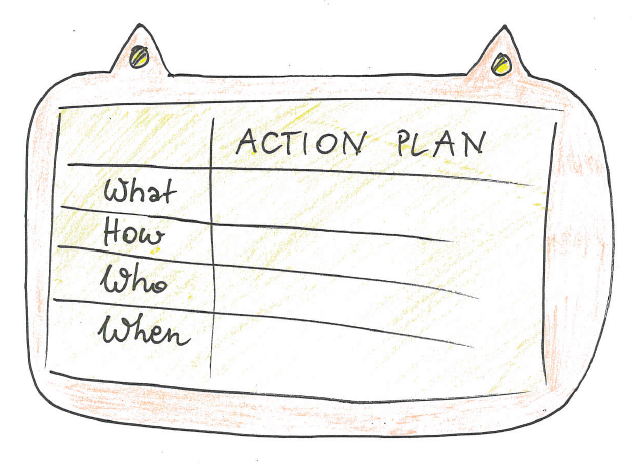 ACTION PLAN
What
How
Who
When